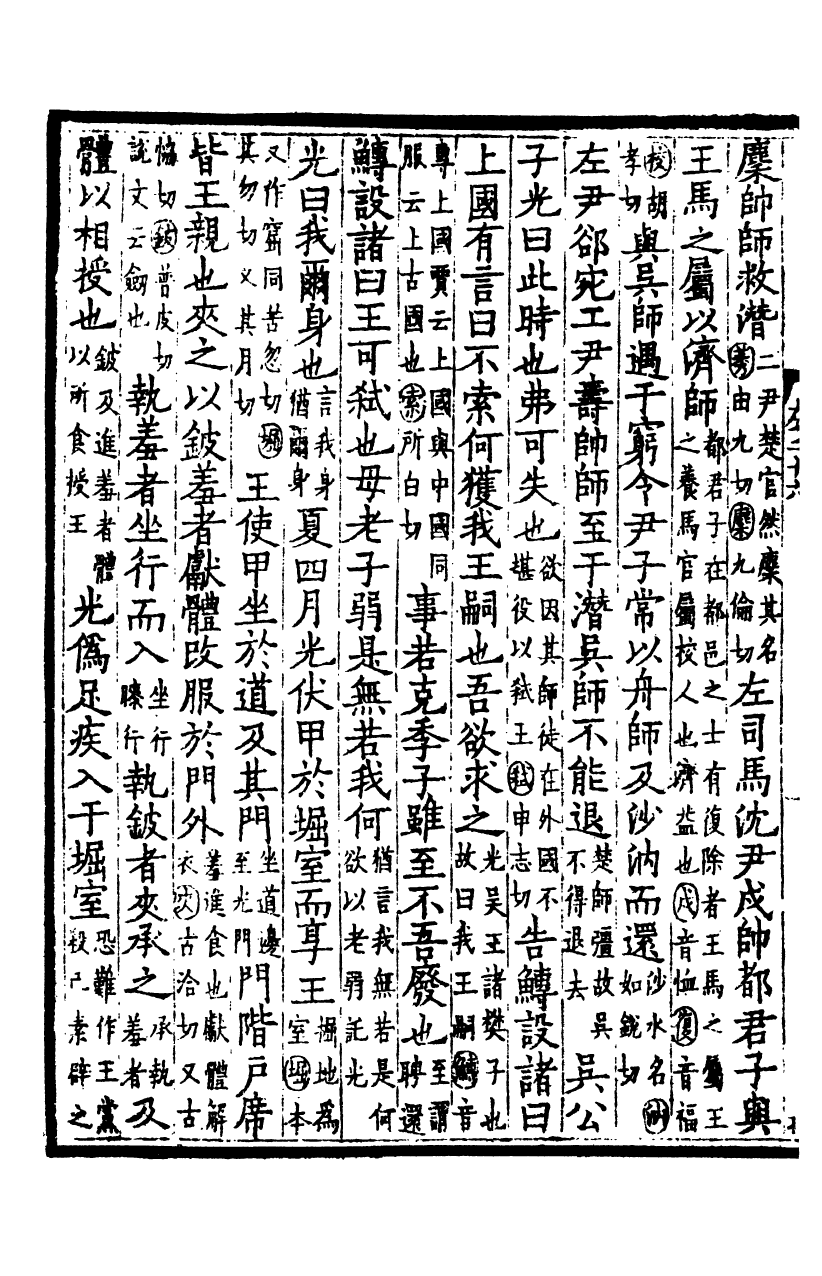 麇帥師救潛二尹楚官然麇其名莠由九切麇九倫切左司馬沈尹戌帥都君子與
王馬之屬以濟師都君子在都邑之士有復除者王馬之屬王之養馬官屬校人也濟益也戌音恤復音福
校胡孝切與吳師遇于窮令尹子常以舟師及沙汭而還沙水名汭如銳切
左尹郤宛工尹壽帥師至于潛吳師不能退楚師彊故吳不得退去吳公
子光曰此時也弗可失也欲因其師徒在外國不堪役以弒王弒申志切告鱄設諸曰
上國有言曰不索何獲我王嗣也吾欲求之光吳王諸樊子也故曰我王嗣鱄音
專上國賈云上國與中國同服云上古國也索所白切事若克季子雖至不吾廢也至謂聘還
鱄設諸曰王可弒也母老子弱是無若我何猶言我無若是何欲以老弱託光
光曰我爾身也言我身猶爾身夏四月光伏甲於堀室而享王掘地為室堀本
又作窟同苦忽切堀其勿切又其月切王使甲坐於道及其門坐道邊至光門門階戶席
皆王親也夾之以鈹羞者獻體改服於門外羞進食也獻體解衣夾古洽切又古
恊切鈹普皮切說文云劒也執羞者坐行而入坐行膝行執鈹者夾承之承執羞者及
體以相授也鈹及進羞者體以所食授王光僞足疾入于堀室恐難作王黨殺己素辟之
左二十六